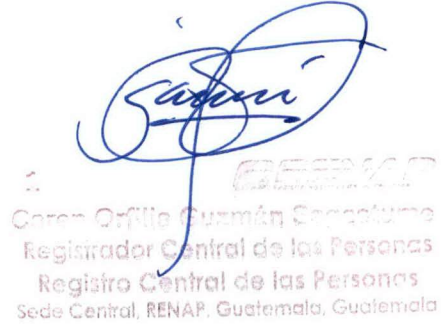 Caren Orfilia Guzmán
Registrador Central de las Personas
Registro Central de las Personas
Sede Central, RENAP. Guatemala, Guatemala